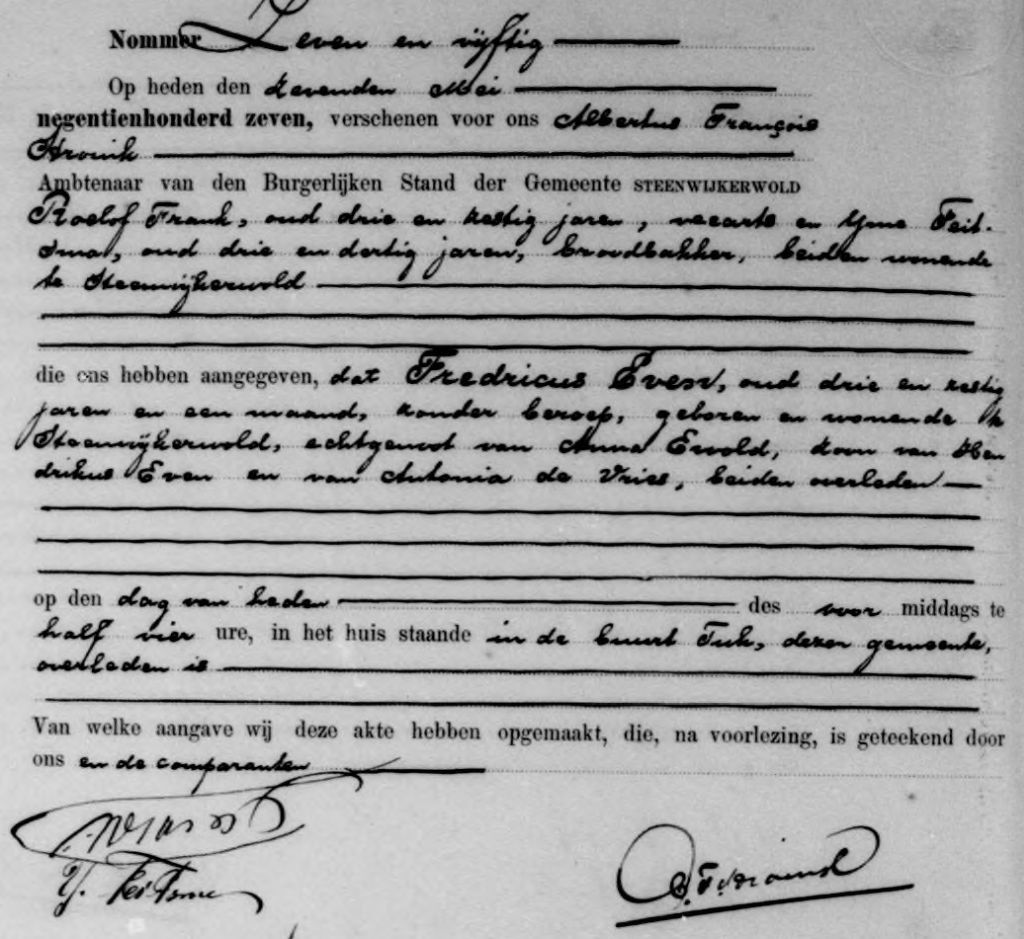 Nommer Zeven en vijftig
Op heden den zevenden Mei
negentienhonderd zeven, verschenen voor ons Albertus François
Stroink
Ambtenaar van den Burgerlijken Stand der Gemeente STEENWIJKERWOLD
Roelof Frank, oud drie en zestig jaren, veearts en Yme Feit-
sma, oud drie en dertig jaren, broodbakker, beiden wonende
te Steenwijkerwold
die ons hebben aangegeven, dat Fredricus Even, oud drie en zestig
jaren en een maand, zonder beroep, geboren en wonende te
Steenwijkerwold, echtgenoot van Anna Ewold, zoon van Hen
drikus Even en van Antonia de Vries, beiden overleden
op den dag van heden des voor middags te
half vier ure, in het huis staande in de buurt Tuk, dezer gemeente,
overleden is
Van welke aangave wij deze akte hebben opgemaakt, die, na voorlezing, is geteekend door
ons en de comparanten
Y. Feitsma